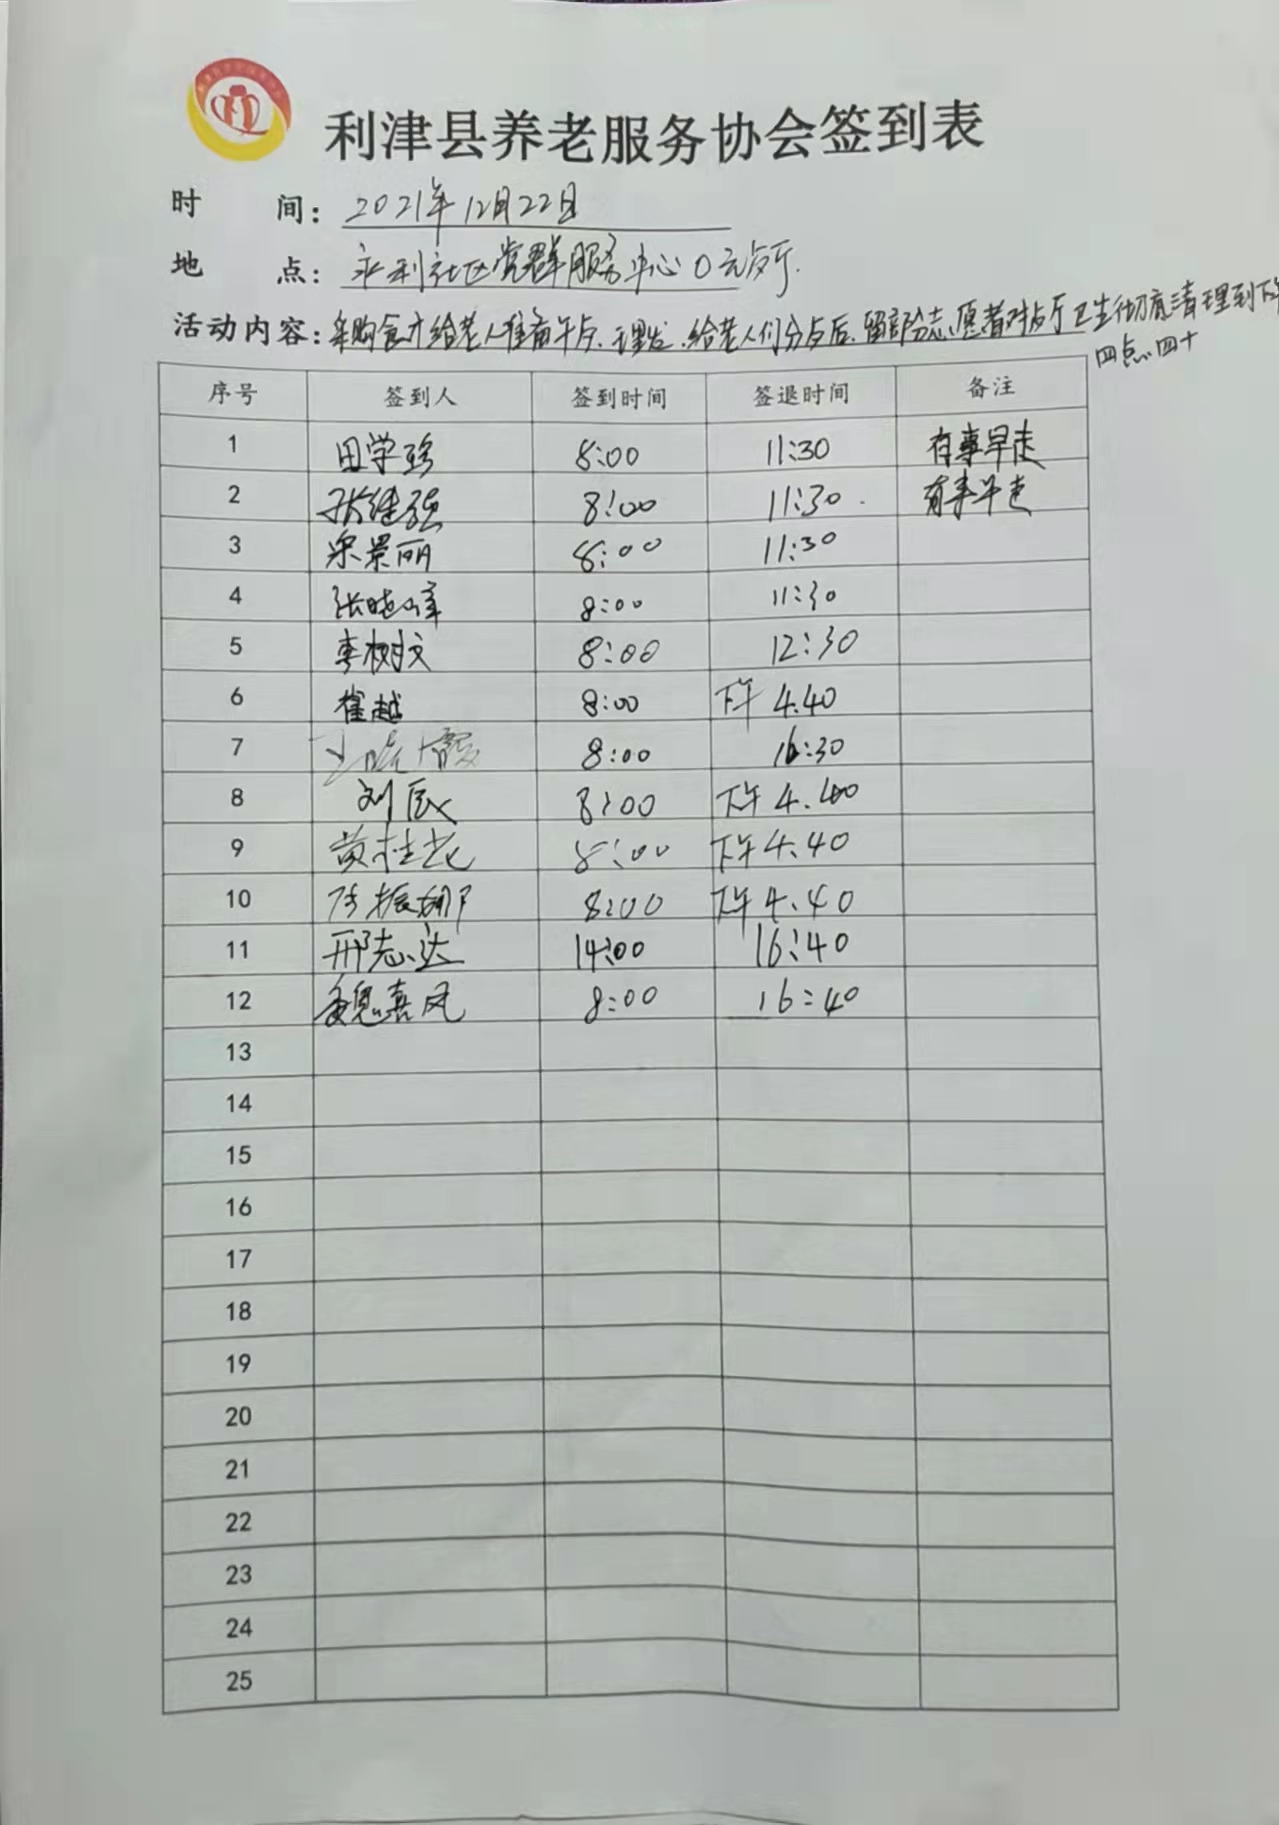 利津县养老服务协会签到表
时 间: 2021年12月22日
地 点: 永利社区党群服务中心0元餐厅.
活动内容: 采购食才给老人准备午歺、理发、给老人们分歺后、留部分志愿者对歺厅卫生彻底清理到下午
四点四十
序号 签到人 签到时间 签退时间 备注
1 田学珍 8:00 11:30 有事早走
2 张继强 8:00 11:30 有事早走
3 景丽 8:00 11:30
4 张晓峰 8:00 11:30
5 李树文 8:00 12:30
6 崔越 8:00 下午 4.40
7 8:00 16:30
8 刘辰 8:00 下午 4.40
9 黄桂花 8:00 下午 4.40
10 振娜 8:00 下午 4.40
11 邢志达 14:00 16:40
12 魏喜凤 8:00 16:40
13
14
15
16
17
18
19
20
21
22
23
24
25